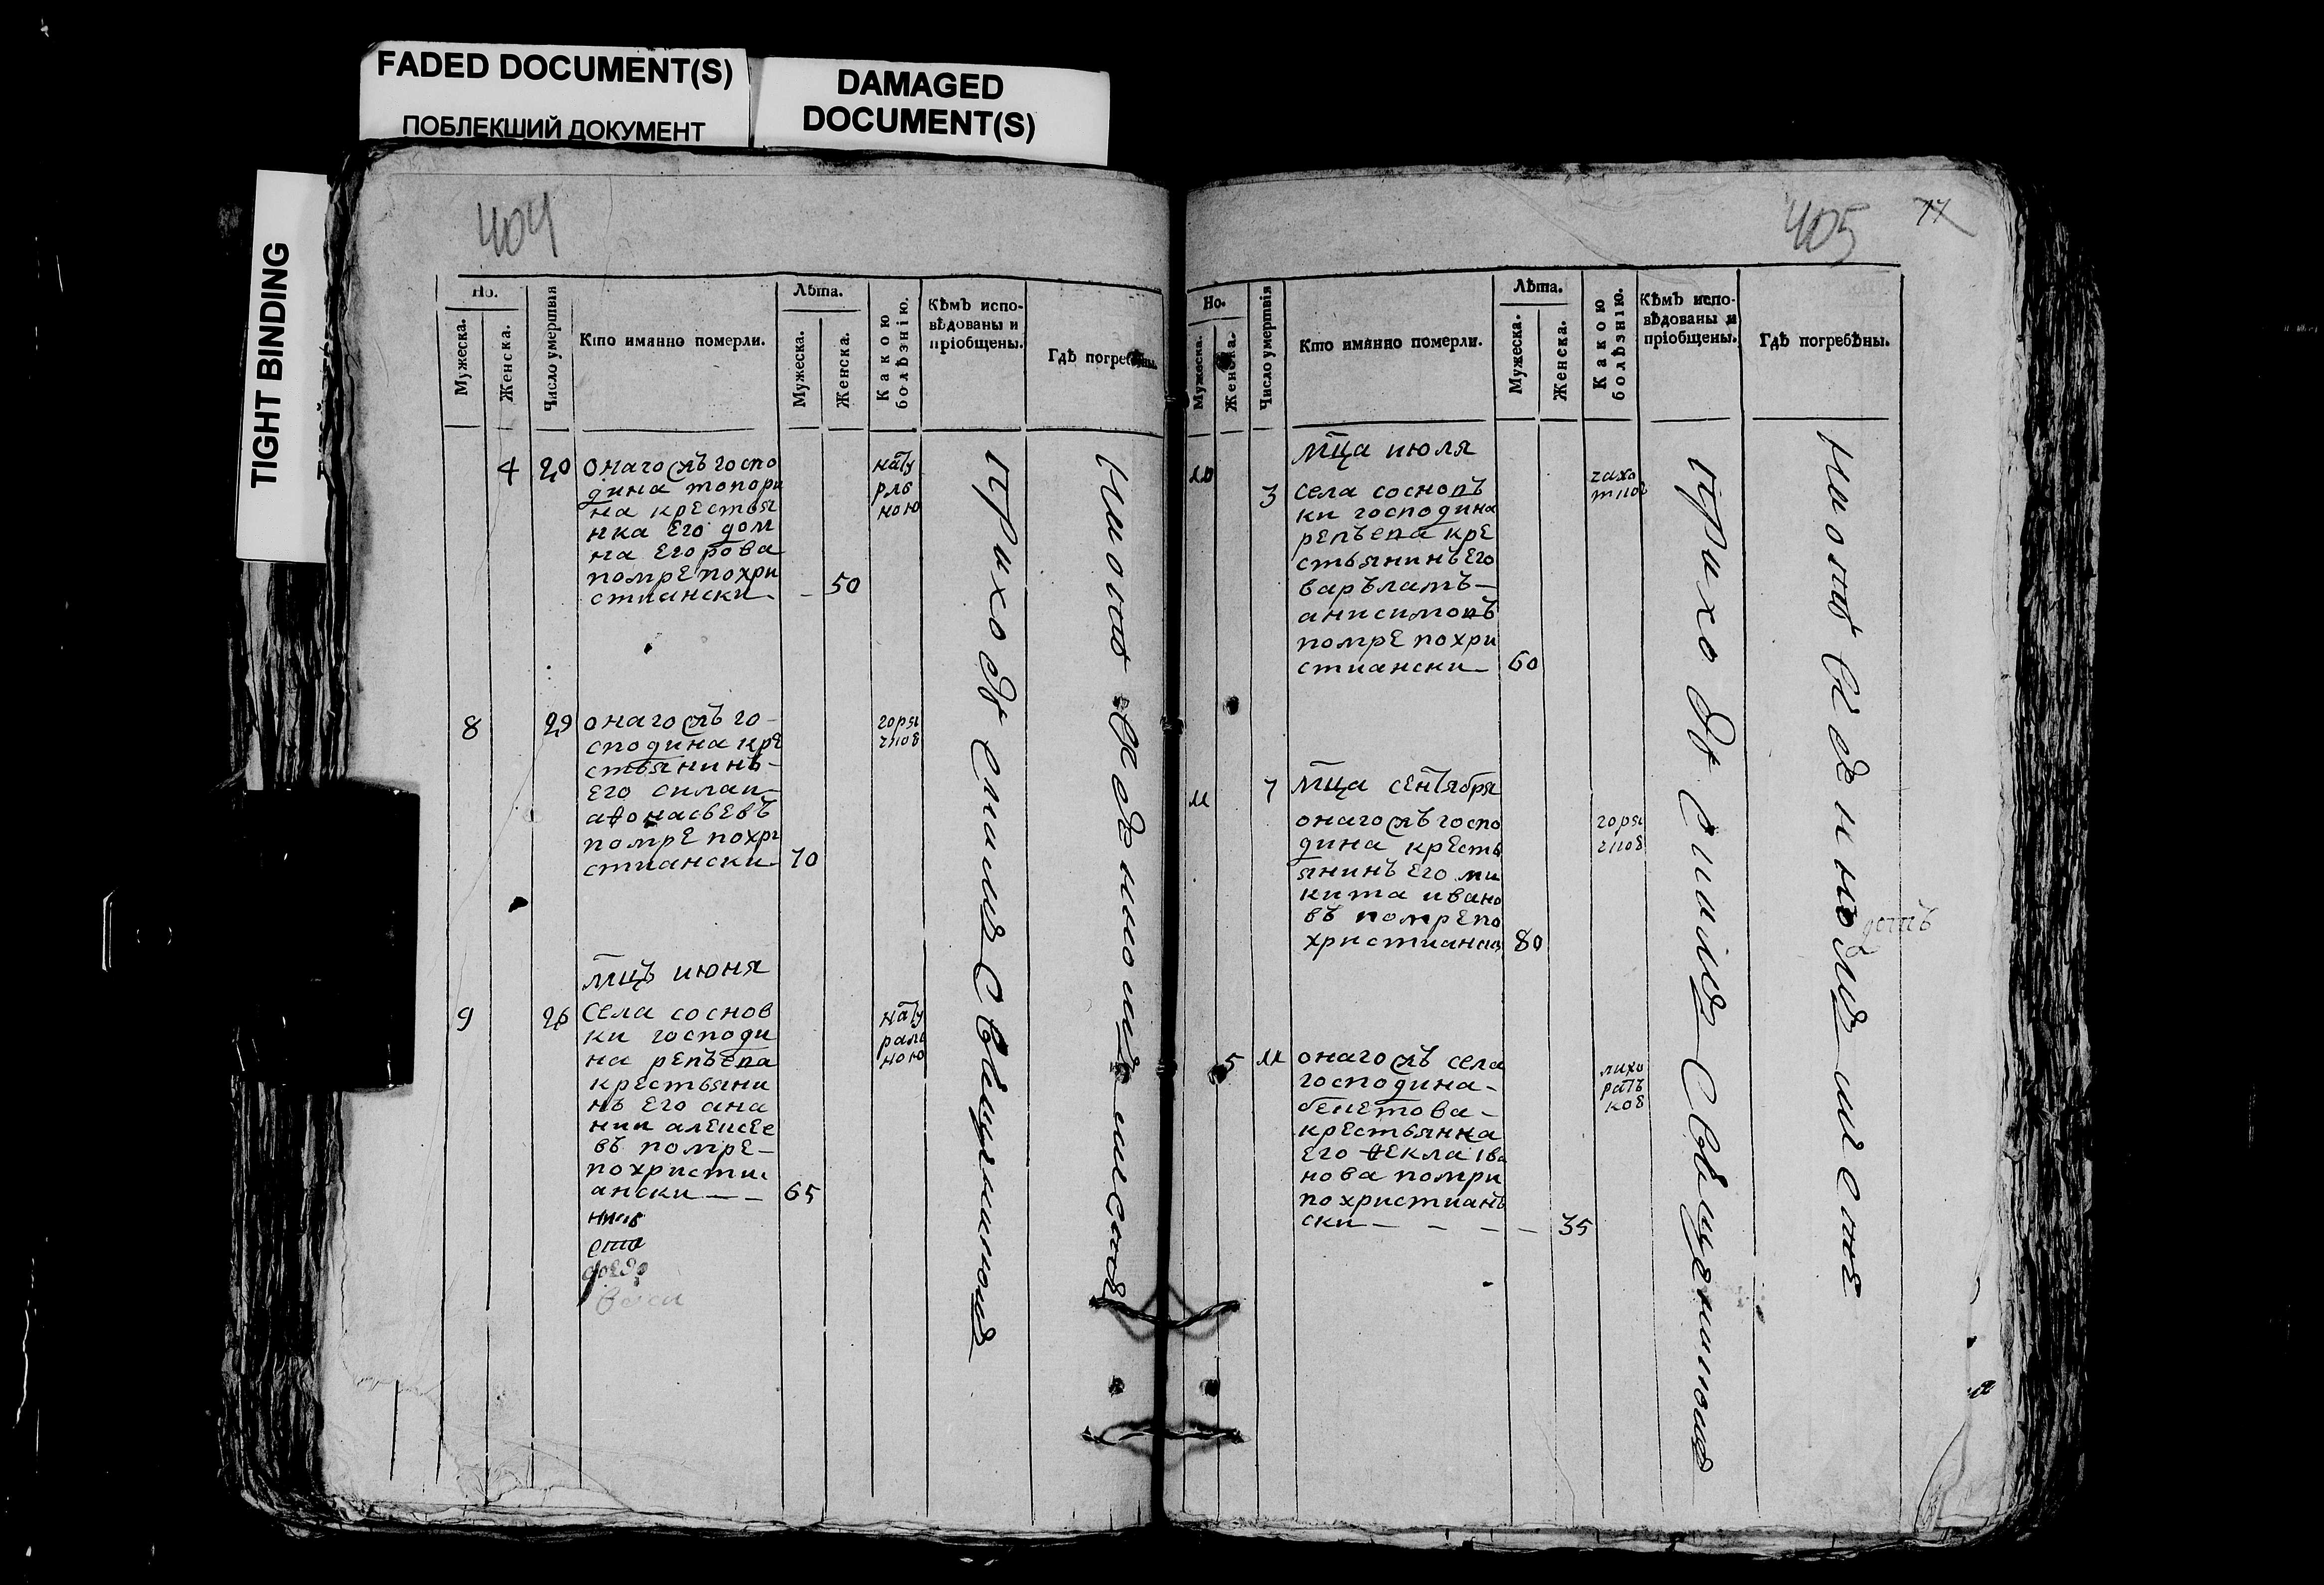 FADED DOCUMENT(S)
ПОБЛЕКШИЙ ДОКУМЕНТ
DAMAGED
DOCUMENT(S)
TIGHT BINDING
404
Но.
Мужеска.
Женска.
Число умертвія
Кто имянно померли.
Лѣта.
Мужеска.
Женска.
Какою
болѣзнію.
Кѣмъ испо-
вѣдованы и
пріобщены.
Гдѣ погребѣны.
4 20
онаго господина
топори
на крестья
нка его дом
на егорова
помре похри
стиански - 50
нату
рль
ною
8 29
онаго го-
сподина кре
стьянинъ-
его силан-
аѳонасьевъ
помре похри
стиански 70
горя
чкоѣ
мцъ июня
9 26
села соснов
ки господи
на репъева
крестьяни
нъ его ана
нии алексее
въ помре-
похристи
ански - - 65
нату
раль
ною
приходскимъ священникомъ
405
17
Но.
Мужеска.
Женска.
Число умертвія
Кто имянно померли.
Лѣта.
Мужеска.
Женска.
Какою
болѣзнію.
Кѣмъ испо-
вѣдованы и
пріобщены.
Гдѣ погребѣны.
мца июля
10 3
села сосновъ
ки господина
репъева кре
стьянинъ его
варълатъ-
анисимовъ
помре похри
стиански- 60
чахо
ткоѣ
11 7
мца сентября
онаго госпо
дина кресть
янинъ его ми
кита ивано
въ помре по
христиански 80
горя
чкоѣ
5 11
онаго села
господина-
бекетова-
крестьянка
его ѳекла ива
нова помри
похристианъ
ски - - - - 35
лихо
ратъ
коѣ
приходскимъ священникомъ